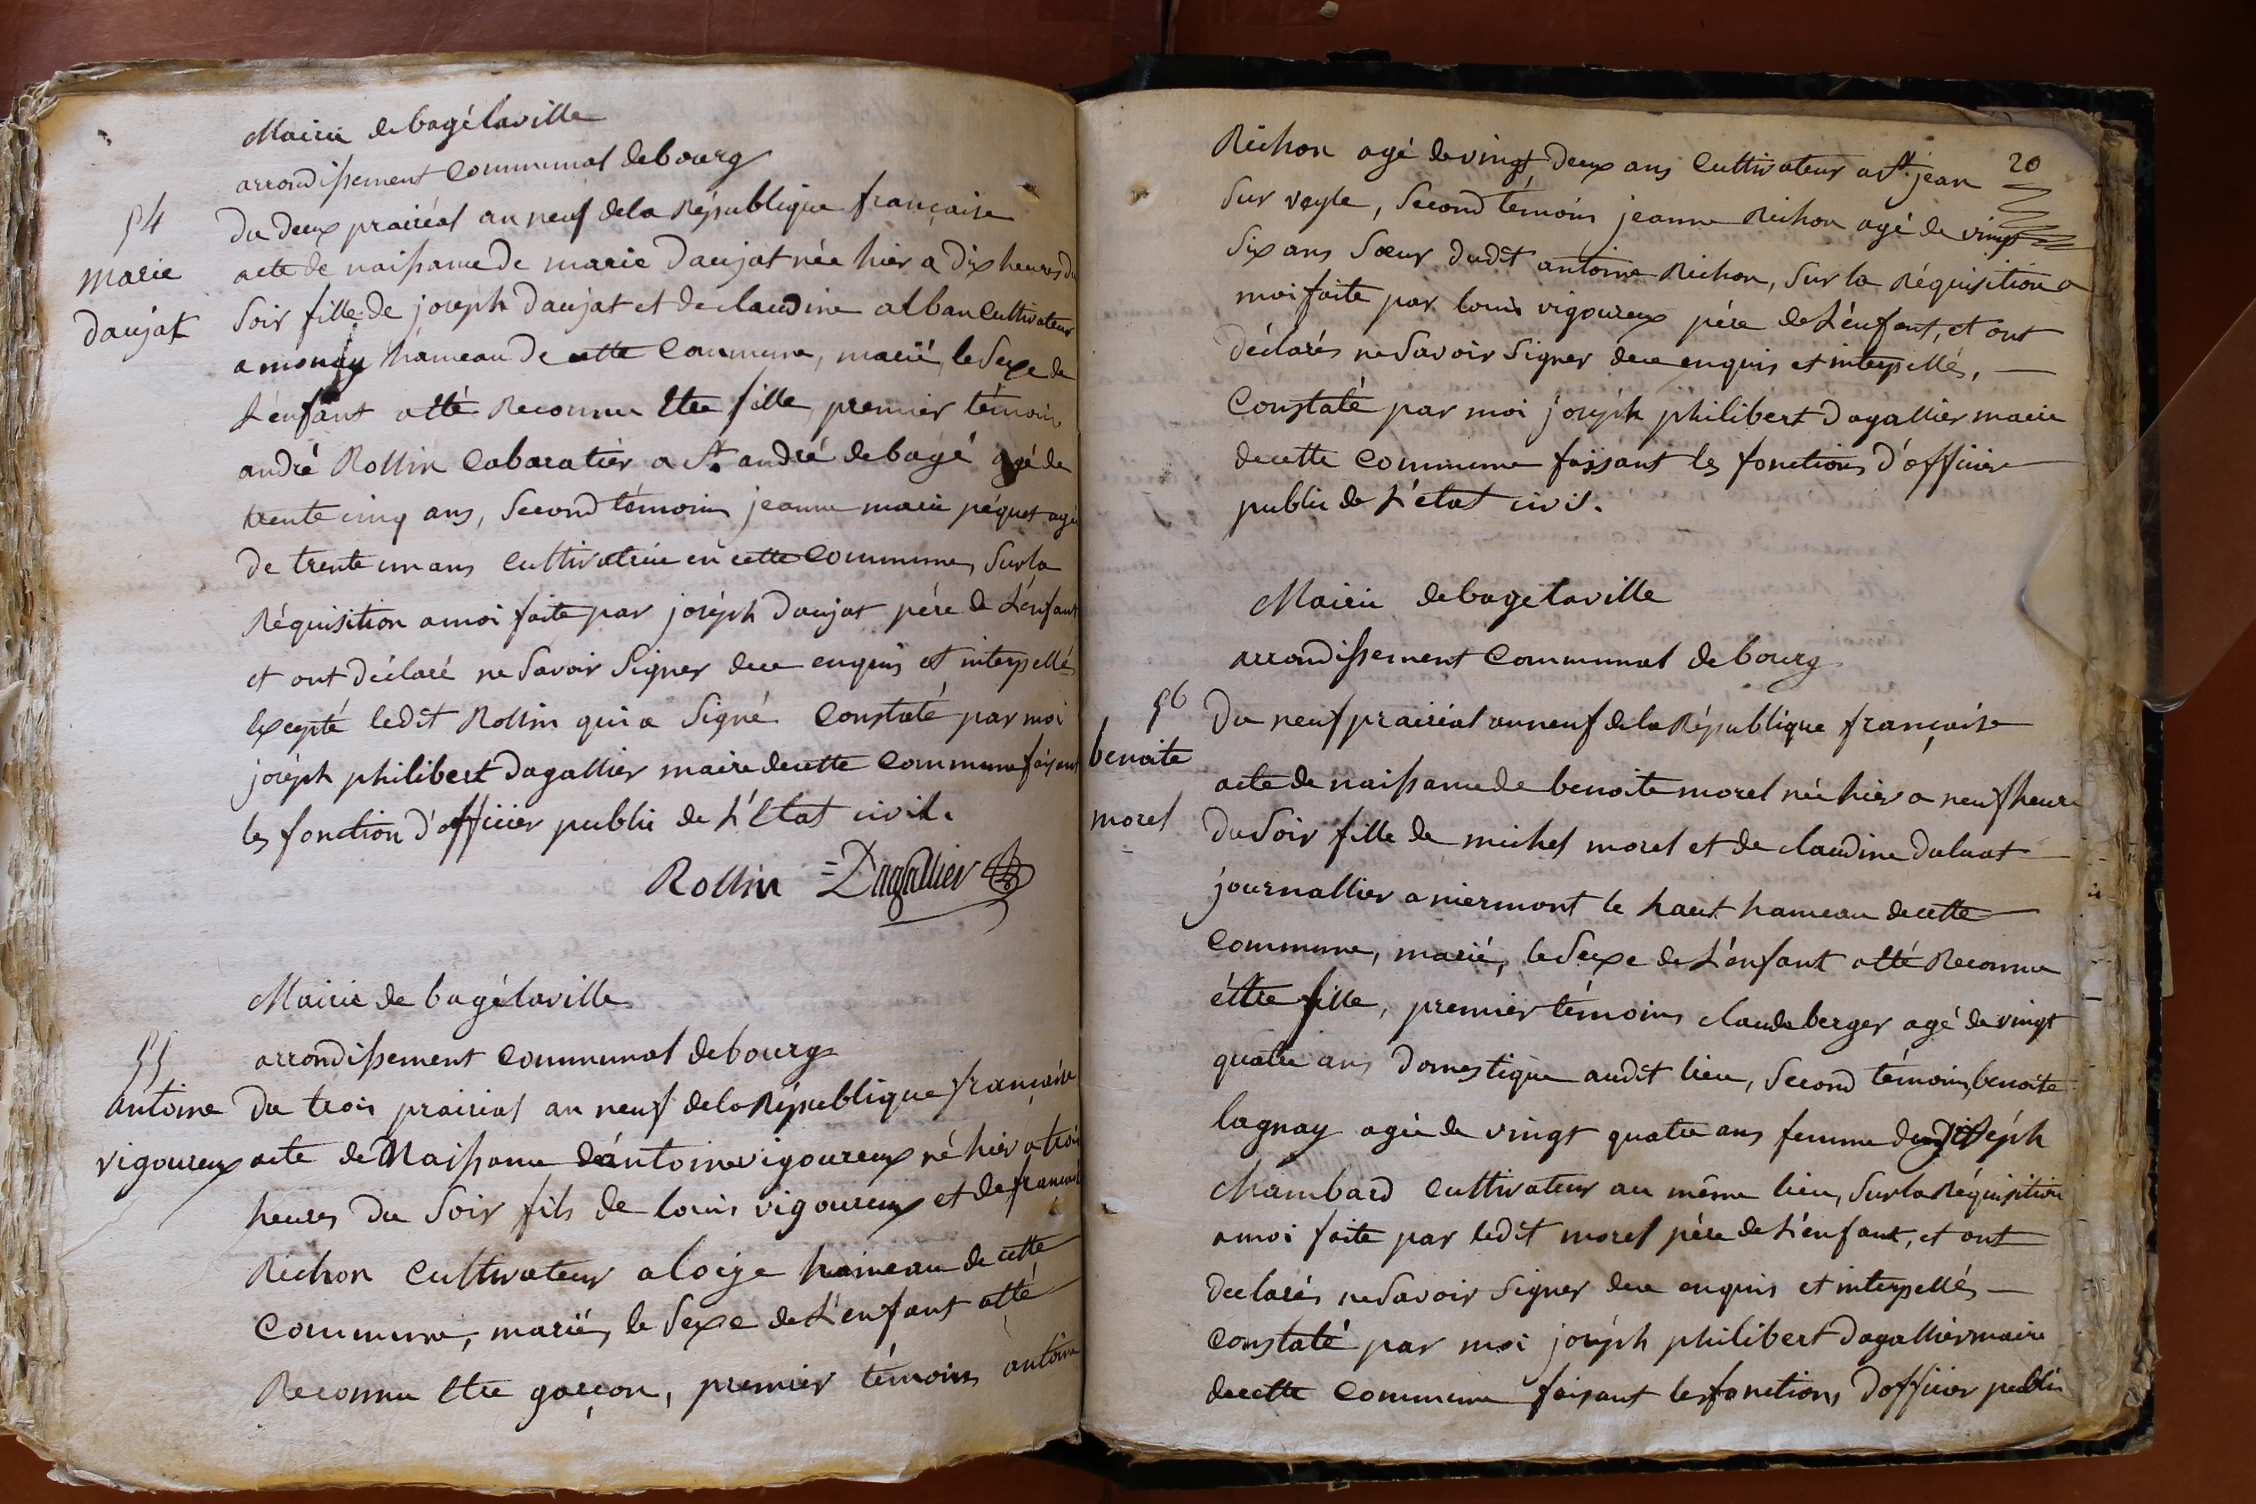 Mairie de bagé la ville
arrondissement Communal de bourg
54
Du deux prairéal an neuf de la République française
marie
daujat
acte de naissance de marie Daujat née hier a Dix heures du
Soir fille de joseph Daujat et de claudine alban Cultivateur
a monay hameau De cette Commune, marié, le Sexe de
L'énfant atté Reconnu Etre fille, premier témoin
andré Rollin Cabaratier a St. andré de bagé agé de
trente cinq ans, Second témoins jeanne marie péquet agée
De trente un ans Cultivatrice en cette Commune, Sur la
Réquisition a moi faite par joséph Daujat pére de L'énfant
et ont déclaré ne Savoir Signer de ce enquis et interpellés
Excepté ledit Rollin qui a Signé. Constaté par moi
joséph philibert Dagallier maire de cette Commune faisant
les fonction d'officier public de L'Etat civil.
Rollin = Dagallier
Mairie de bagé la ville
arrondissement Communal de bourg
55
antoine
vigoureux
Du trois prairial an neuf de la République française
acte de Naissance d'antoine vigoureux né hier a trois
heures Du Soir fils de louis vigoureux et de françoise
Richon Cultivateur a loize hameau de cette
Commune, mariés, le Sexe de L'énfant atté
Reconnu Etre garçon, premier témoins antoine
20
Richon agé de vingt Deux ans Cultivateur a St. jean
Sur veyle, Second témoins jeanne Richon agé de vingt
Six ans Sœur dudit antoine Richon, Sur la Réquisition a
moi faite par louis vigoureux pére de L'énfant, et ont
déclarés ne Savoir Signer de ce enquis et interpellés,
Constaté par moi joséph philibert Dagallier maire
de cette Commune faisant les fonctions d'officier
public de L'état civil.
Mairie de bagé la ville
arrondissement Communal de bourg
56
benoite
morel
Du neuf prairéal an neuf de la République française
acte de naissance de benoite morel née hier a neuf heure
Du Soir fille de michel morel et de claudine
journallier a niermont le haut hameau de cette
Commune, marié, le Sexe de L'énfant atté Reconnu
éttre fille, premier témoins claude berger agé de vingt
quatre ans Domestique audit lieu, Second témoins, benoite
lagnay agée de vingt quatre ans femme de joséph
Chambard Cultivateur au même lieu, Sur la Réquisition
a moi faite par ledit morel pére de L'énfant, et ont
déclarés ne Savoir Signer de ce enquis et interpellés
Constaté par moi joséph philibert Dagallier maire
de cette Commune faisant les fonctions D'officier public